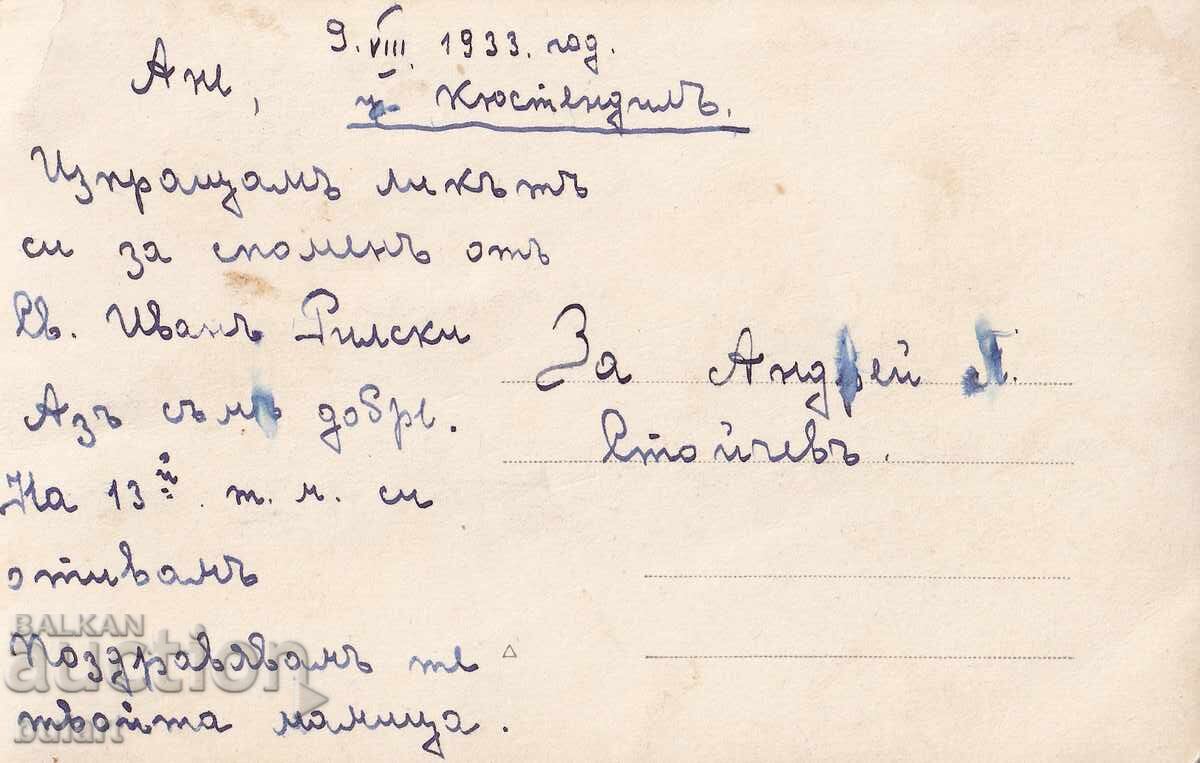 9. VIII. 1933. год.
Ане, Кюстендилъ.
Изпращамъ ликътъ
си за споменъ отъ
Св. Иванъ Рилски
Азъ съмъ добре.
На 13й. т. м. си
отивамъ
Поздравявамъ те
твойта мамица.
За Андрей
Стойчевъ.
BALKAN
auction
bulart